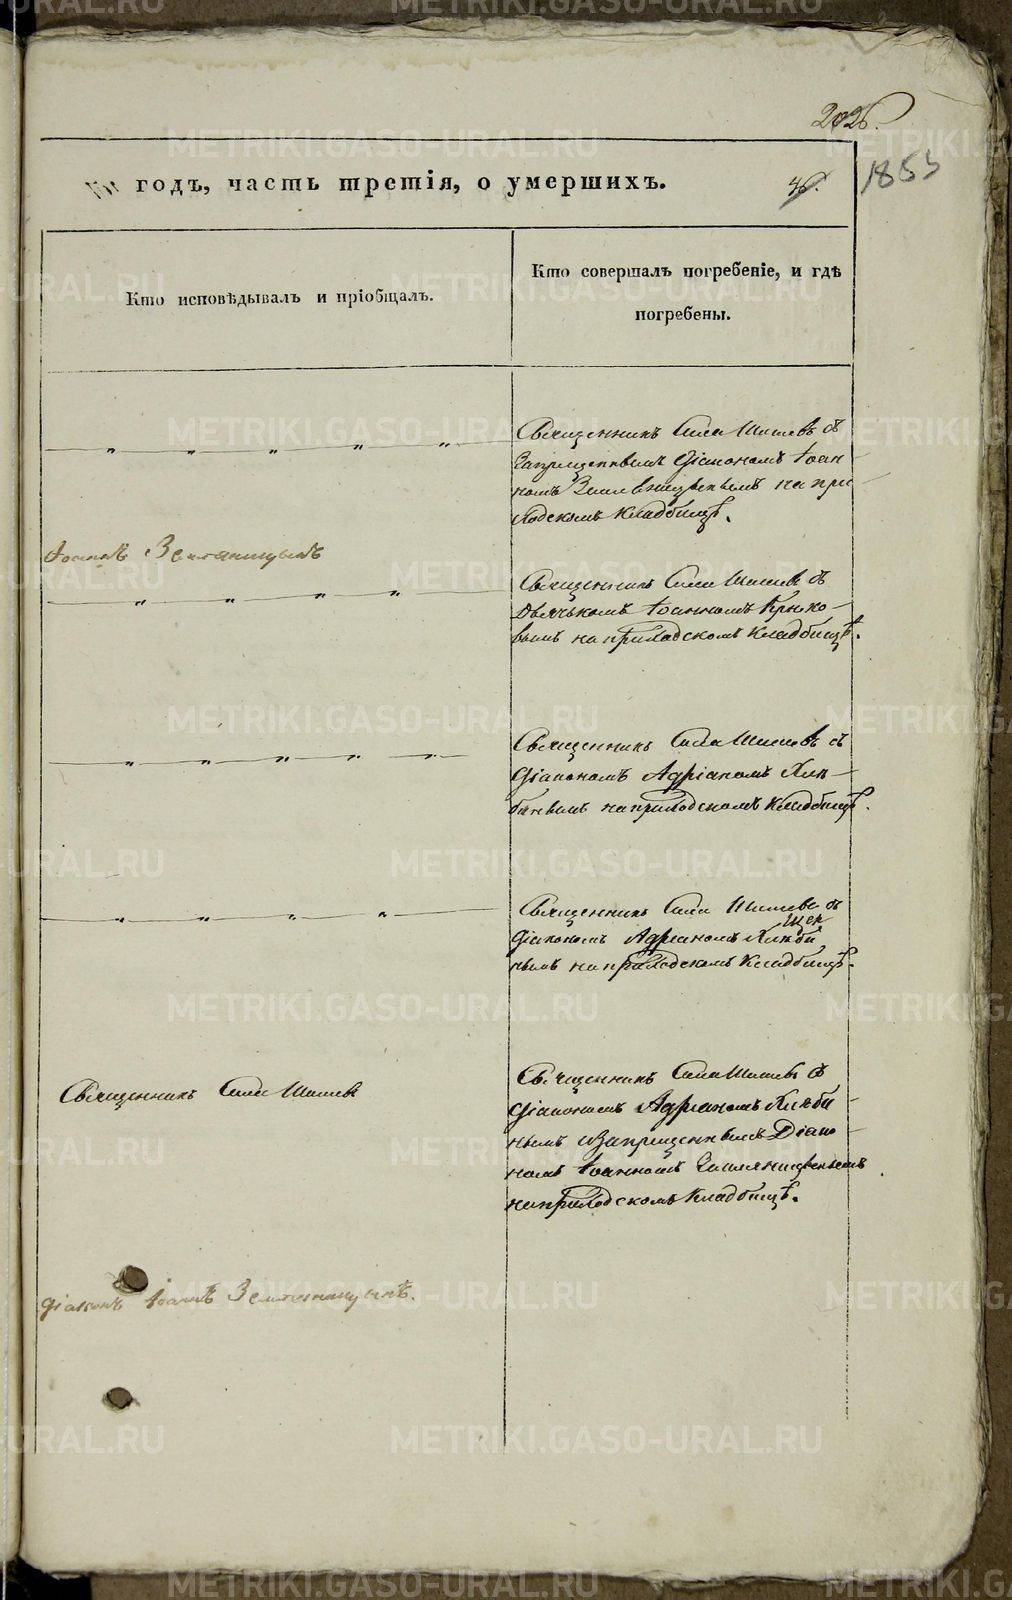 202б.
годъ, часть третія, о умершихъ.
1853
Кто исповѣдывалъ и пріобщалъ.
Кто совершалъ погребеніе, и гдѣ
погребены.
Священникъ Сила Шишевъ съ
Запрещеннымъ Діакономъ Іоан
номъ на при
ходскомъ Кладбищѣ.
Іоаннъ Земляницынъ
Священникъ Сила Шишевъ съ
Дьячькомъ Іоанномъ Крюко-
вымъ на приходскомъ Кладбищѣ.
Священникъ Сила Шишевъ съ
Діакономъ Адріаномъ Хлѣ-
бинымъ на приходскомъ Кладбищѣ.
Священникъ Сила Шишевъ съ
Діакономъ Адрианомъ Хлѣби
нымъ на приходскомъ Кладбищѣ.
Священникъ Сила Шишевъ
Священникъ Сила Шишевъ съ
Діакономъ Адрианомъ Хлѣби-
нымъ и Запрещеннымъ Діако-
номъ Іоанномъ Земляницынымъ
на приходскомъ Кладбищѣ.
діаконъ Іоаннъ Земляницынъ.
METRIKI.GASO-URAL.RU